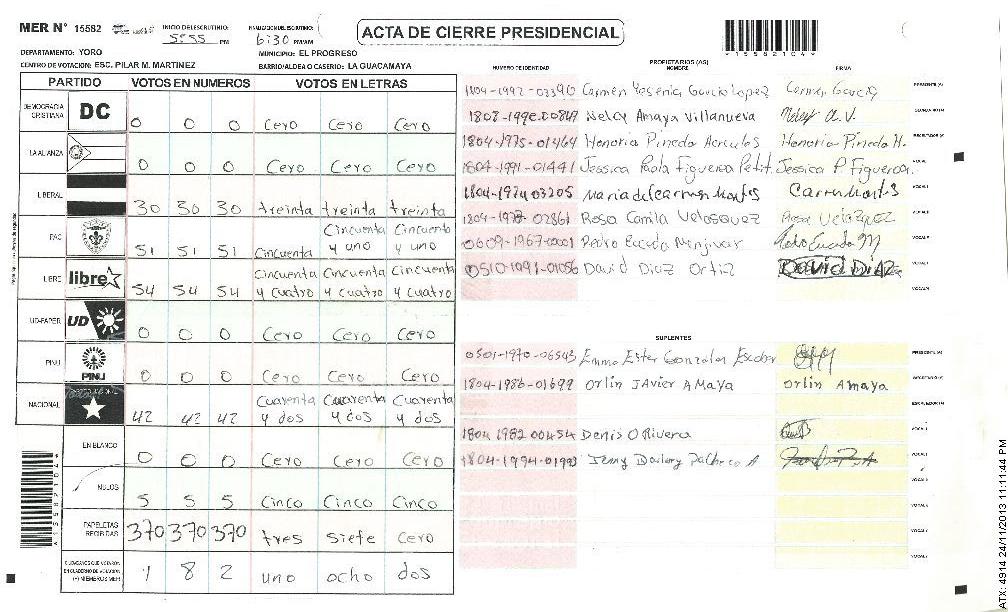 MER N° 15582
INICIO DEL ESCRUTINIO: 5:55 PM
FINALIZACION DEL ESCRUTINIO: 6:30 PM/AM
ACTA DE CIERRE PRESIDENCIAL
*15582104*
DEPARTAMENTO: YORO
MUNICIPIO: EL PROGRESO
CENTRO DE VOTACION: ESC. PILAR M. MARTINEZ
BARRIO/ALDEA O CASERIO: LA GUACAMAYA
PARTIDO VOTOS EN NUMEROS VOTOS EN LETRAS
DEMOCRACIA CRISTIANA DC 0 0 0 Cero Cero Cero
LA ALIANZA 0 0 0 Cero Cero Cero
LIBERAL 30 30 30 treinta treinta treinta
PAC 51 51 51 Cincuenta Cincuenta y uno Cincuenta y uno
LIBRE libre 54 54 54 Cincuenta y cuatro Cincuenta y cuatro Cincuenta y cuatro
UD-FAPER UD 0 0 0 Cero Cero Cero
PINU PINU 0 0 0 Cero Cero Cero
NACIONAL 42 42 42 Cuarenta y dos Cuarenta y dos Cuarenta y dos
EN BLANCO 0 0 0 Cero Cero Cero
NULOS 5 5 5 Cinco Cinco Cinco
PAPELETAS RECIBIDAS 370 370 370 tres siete cero
CIUDADANOS QUE VOTARON EN CUADERNO DE VOTACION (+) MIEMBROS MER 1 8 2 uno ocho dos
PROPIETARIOS (AS)
NUMERO DE IDENTIDAD NOMBRE FIRMA
1804-1992-03390 Carmen Yesenia Garcia Lopez Carmen Garcia PRESIDENTE (A)
Nelcy Amaya Villanueva A.V.
1804-1975-01464 Honoria Pineda Honoria Pineda H.
1804-1991-01491 Jessica Paola Figueroa Jessica P. Figueroa
1804-1974 03205 Maria del Carmen VOCAL
02861 Rosa Camila Velasquez Rosa VOCAL
0609-1967-00001 Pedro VOCAL
0510-1991-01056 David Diaz Ortiz DAVID DIAZ VOCAL
SUPLENTES
0501-1970-06543 Emma Ester Gonzales Escobar PRESIDENTE (A)
1804-1986-01699 Orlin JAvier AMaya Orlin Amaya SECRETARIO (A)
ESCRUTADOR (A)
1804 1982 00454 Denis O Rivera VOCAL
1804-1994-01993 Pacheco A VOCAL
ATX: 4914 24/11/2013 11:11:44 PM